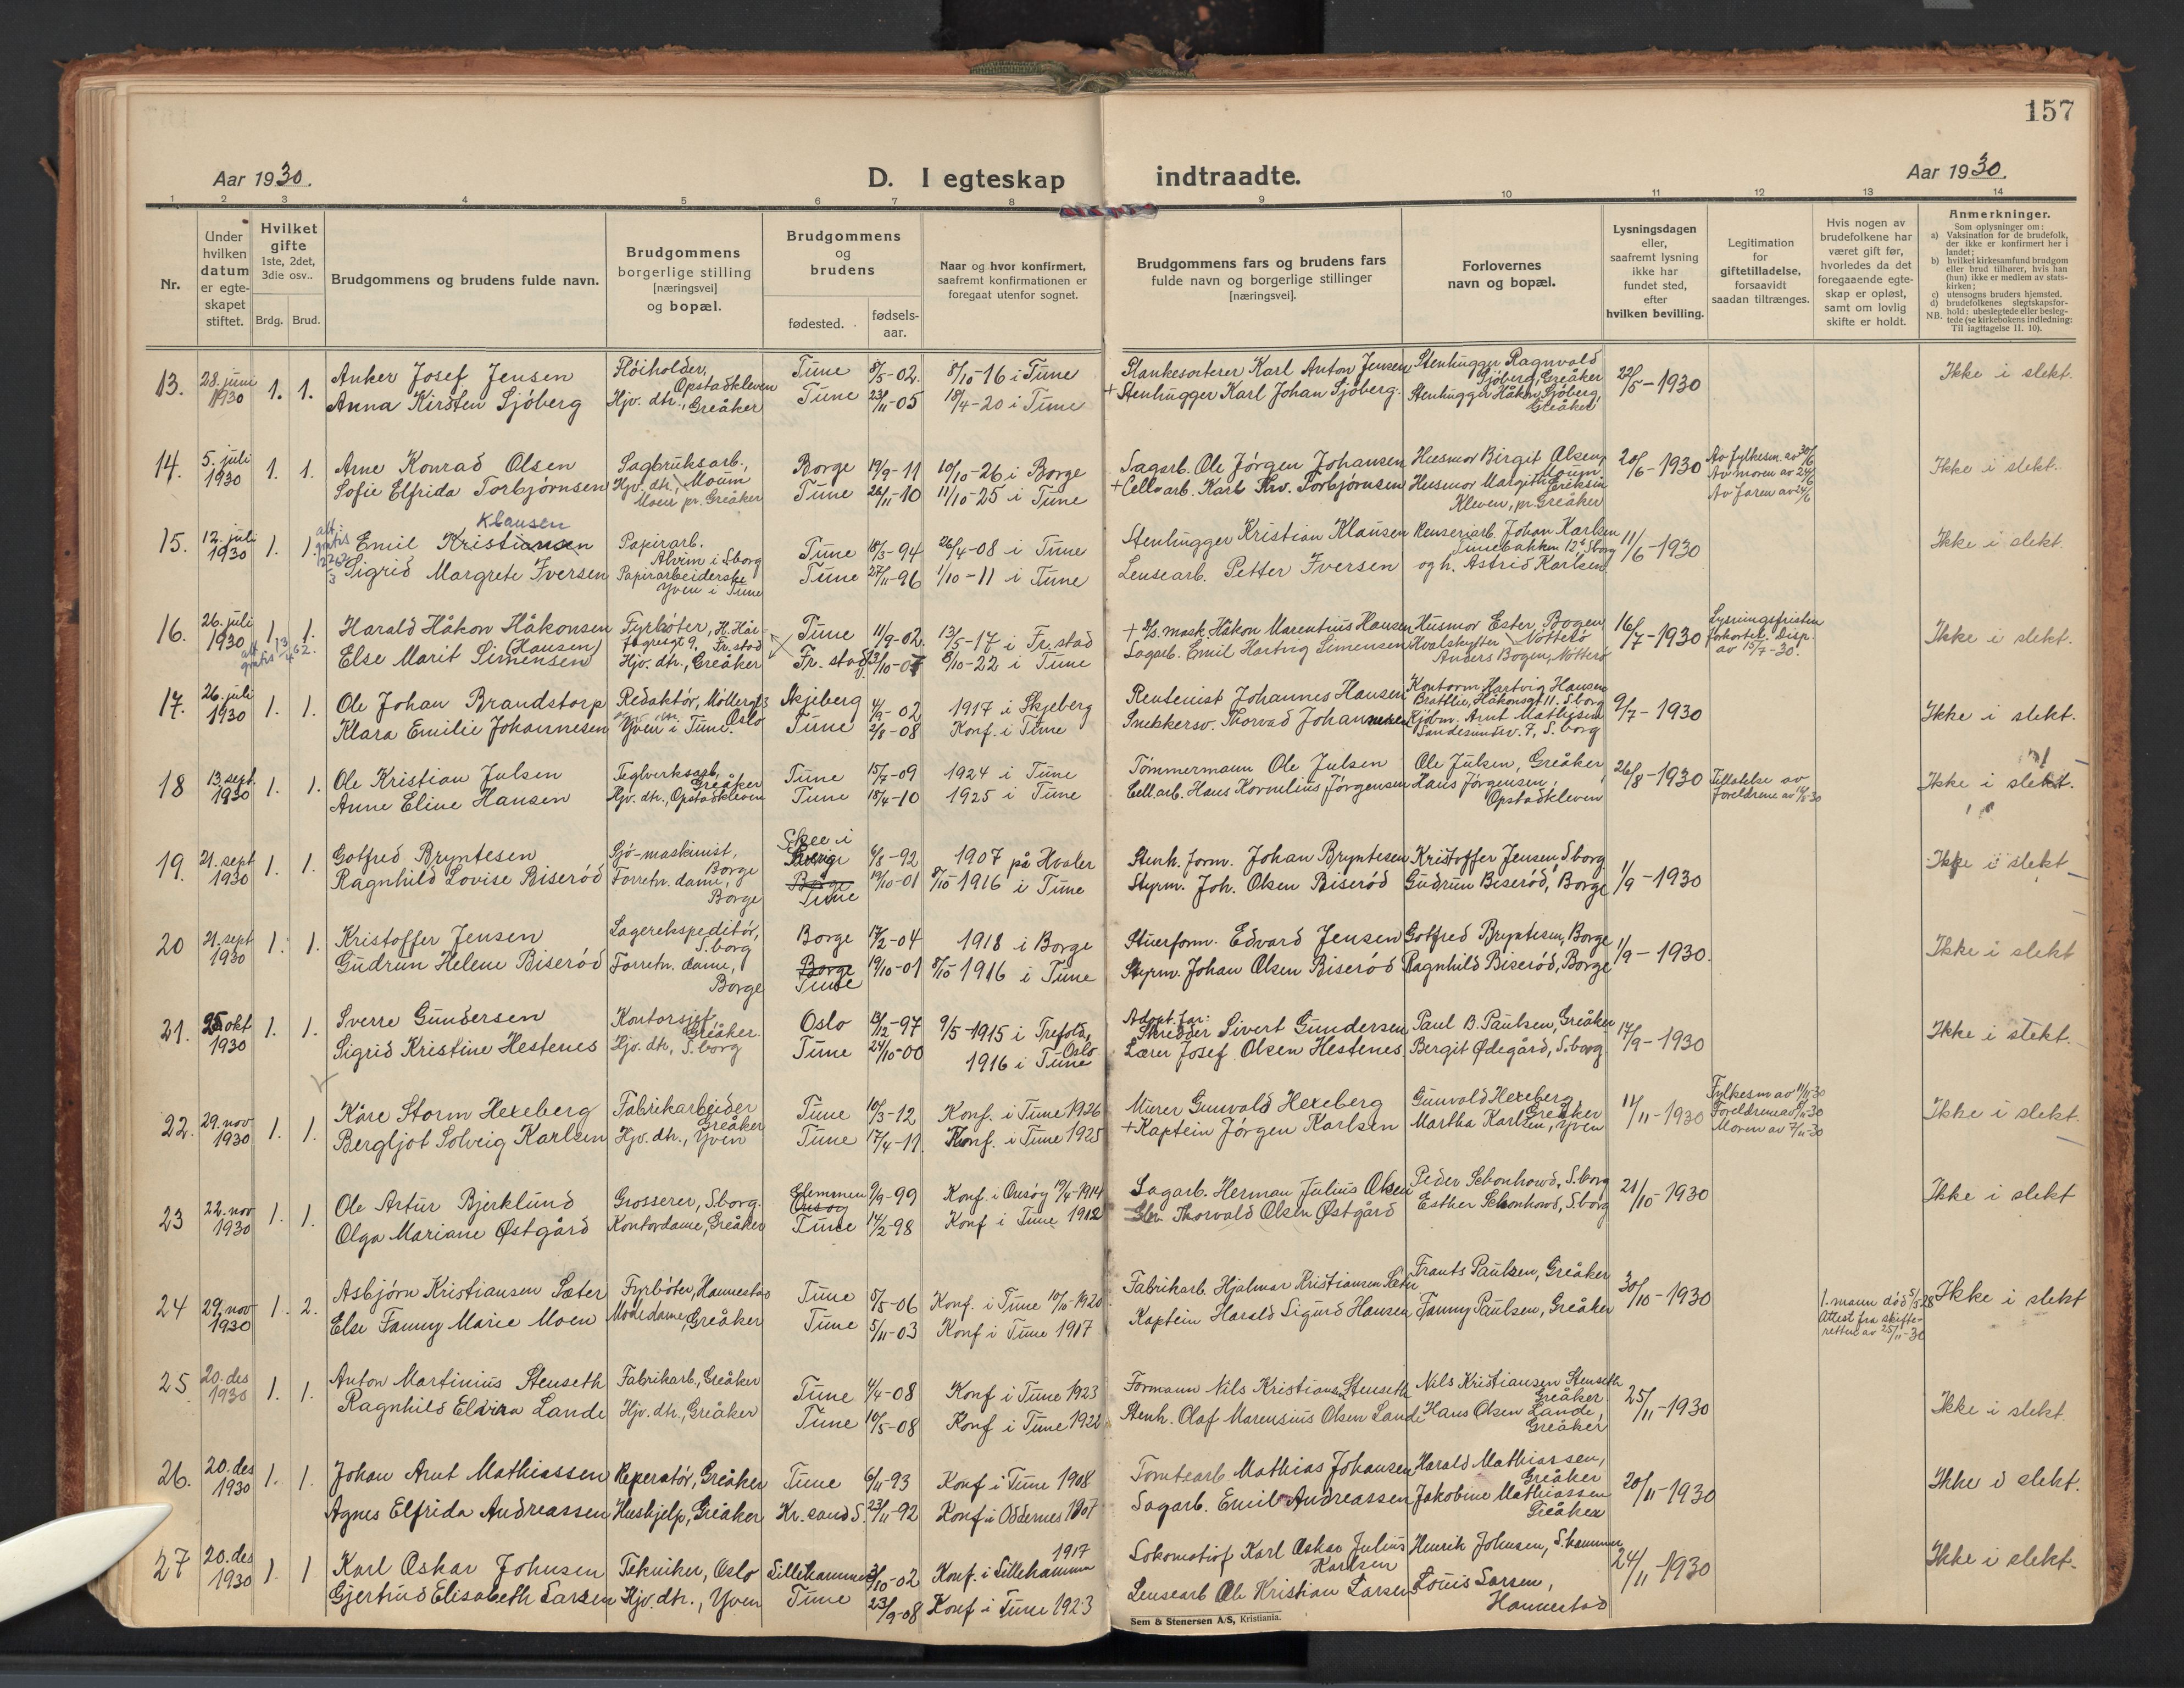 157
Aar 1930.
D. I egteskap indtraadte.
Aar 1930.
1 2 3 4 5 6 7 8 9 10 11 12 13 14
Nr.
Under hvilken datum er egteskapet stiftet.
Hvilket gifte 1ste, 2det, 3die osv..
Brdg. Brud.
Brudgommens og brudens fulde navn.
Brudgommens borgerlige stilling [næringsvei] og bopæl.
Brudgommens og brudens
fødested. fødsels-aar.
Naar og hvor konfirmert, saafremt konfirmationen er foregaat utenfor sognet.
Brudgommens fars og brudens fars fulde navn og borgerlige stillinger [næringsvei].
Forlovernes navn og bopæl.
Lysningsdagen eller, saafremt lysning ikke har fundet sted, efter hvilken bevilling.
Legitimation for giftetilladelse, forsaavidt saadan tiltrænges.
Hvis nogen av brudefolkene har været gift før, hvorledes da det foregaaende egteskap er opløst, samt om lovlig skifte er holdt.
Anmerkninger.
Som oplysninger om:
a) Vaksination for de brudefolk, der ikke er konfirmert her i landet;
b) hvilket kirkesamfund brudgom eller brud tilhører, hvis han (hun) ikke er medlem av statskirken;
c) utensogns bruders hjemsted.
d) brudefolkenes slegtskapsforhold: ubeslegtede eller beslegtede (se kirkebokens indledning: Til iagttagelse II. 10).
NB.
13. 28. juni 1930 1. 1. Anker Josef Jensen Fløiholder, Opstadkleven Tune 8/5-02. 8/10-16 i Tune Plankesorterer Karl Anton Jensen Stenhugger Ragnvald Sjöberg, Greåker 22/5-1930 Ikke i slekt.
Anna Kirsten Sjöberg Hjv. dtr., Greåker Tune 23/11-05 18/4-20 i Tune + Stenhugger Karl Johan Sjöberg. Stenhugger Håkon Sjöberg, Greåker
14. 5. juli 1930 1. 1. Arne Konrad Olsen Sagbruksarb., Moum Borge 19/9-11 10/10-26 i Borge Sagarb. Ole Jörgen Johansen Husmor Birgit Olsen, Moum 20/6-1930 Av fylkesm. av 30/6 Av moren av 24/6 Av faren av 24/6 Ikke i slekt.
Sofie Elfrida Torbjörnsen Hjv. dtr., Moen pr. Greåker Tune 26/11-10 11/10-25 i Tune + Cellvarb. Karl Krv. Torbjörnsen Husmor Margith Eriksen Kleven, pr. Greåker
15. 12. juli 1930 1. 1. Emil Kristiansen Klausen Papirarb. Alvim i S.borg Tune 18/3-94 26/4-08 i Tune Stenhugger Kristian Klausen Renseriarb. Johan Karlsen Tunebakken 12b S.borg 11/6-1930 Ikke i slekt.
Sigrid Margrete Iversen Papirarbeiderske Yven i Tune Tune 27/11-96 1/10-11 i Tune Lensearb. Petter Iversen og h. Astrid Karlsen
16. 26. juli 1930 1. 1. Harald Håkon Håkonsen (Hansen) Fyrböter, H. Hårfagresgt 9, Fr.stad Tune 11/9-02. 13/5-17 i Fr.stad + D/s. mask. Håkon Marentius Hansen Husmor Ester Bogen, Nötterö 16/7-1930 Lysningsfristen forkortet. Disp. av 15/7-30. Ikke i slekt.
Else Marit Simensen Hjv. dtr., Greåker Fr. stad 8/10-22 i Tune Sagarb. Emil Hartvig Simensen Hvalskytter Anders Bogen, Nötterö
17. 26. juli 1930 1. 1. Ole Johan Brandstorp Redaktör, Möllergt 3 Oslo Skjeberg 4/9-02 1917 i Skjeberg Rentenist Johannes Hansen Kontorm. Hartvig Hansen Bratlie, Håkonsgt 11. S.borg 9/7-1930 Ikke i slekt.
Klara Emilie Johannesen Yven i Tune. Tune 2/6-08 Konf. i Tune Snekkersv. Thorvald Johannesen Kjöbm. Arnt Mathisen Sandesundsv. 7, S. borg
18 13. sept. 1930 1. 1. Ole Kristian Julsen Teglverksarb., Greåker Tune 15/7-09 1924 i Tune Tömmermann Ole Julsen Ole Julsen, Greåker 26/8-1930 Tillatelse av foreldrene Ikke i slekt.
Anne Eline Hansen Hjv. dtr., Opstadkleven Tune 18/4-10 1925 i Tune Cell.arb. Hans Kornelius Jörgensen Hans Jörgensen, Opstadkleven
19. 21. sept 1930 1. 1. Gotfred Bryntesen Sjö-maskinist, Borge Skee i Sverige 6/8-92 1907 på Hvaler Stenh. form. Johan Bryntesen Kristoffer Jensen, S.borg 1/9-1930 Ikke i slekt
Ragnhild Lovise Biseröd Forretn. dame, Borge Borge Tune 19/10-01 8/10 1916 i Tune Styrm. Joh. Olsen Biseröd Gudrun Biseröd, Borge
20 21. sept 1930 1. 1. Kristoffer Jensen Lagerekspeditör, S.borg Borge 17/2-04 1918 i Borge Stuerform. Edvard Jensen Gotfred Bryntesen, Borge 1/9-1930. Ikke i slekt
Gudrun Helene Biseröd Forretn. dame, Borge Borge Tune 19/10-01 8/10 1916 i Tune Styrm. Johan Olsen Biseröd Ragnhild Biseröd, Borge
21. 25 okt 1930 1. 1. Sverre Gundersen Kontorsjef, Greåker. Oslo 13/12-97 9/5-1915 i Trefold., Oslo Adopt. far: Skredder Sivert Gundersen Paul B. Paulsen, Greåker 17/9-1930 Ikke i slekt.
Sigrid Kristine Hestenes Hjv. dtr, S.borg Tune 24/10-00 1916 i Tune Lærer Josef Olsen Hestenes Bergit Ødegård, S.borg.
22. 29. nov 1930 1. 1. Kåre Storm Hexeberg Fabrikarbeider Greåker Tune 10/3-12 Konf. i Tune 1926 Murer Gunvald Hexeberg Gunvald Hexeberg, Greåker 11/11-1930 Fylkesm av 11/11-30 Foreldrene av Moren av 7/11-30 Ikke i slekt.
Bergljot Solveig Karlsen Hjv. dtr., Yven Tune 17/4-11. Konf. i Tune 1925 + Kaptein Jörgen Karlsen Martha Karlsen, Yven
23 22. nov 1930 1. 1. Ole Artur Bjerklund Grosserer, S.borg. Glemmen Onsöy 9/9-99 Konf. i Onsöy 19/4-1914 Sagarb. Herman Julius Olsen Peder Schonhowd, S.borg 21/10-1930 Ikke i slekt
Olga Mariane Østgård Kontordame, Greåker Tune 14/2-98 Konf i Tune 1912 Thorvald Olsen Østgård Esther Schonhowd, S.borg
24 29. nov 1930 1. 2. Asbjörn Kristiansen Sæter Fyrböter, Hannestad Tune 8/5-06 Konf. i Tune 10/10-1920 Fabrikarb. Hjalmar Kristiansen Sæter Frants Paulsen, Greåker 30/10-1930 1. mann död 5/5-28 Attest fra skifteretten av 25/11-30 Ikke i slekt
Else Fanny Marie Moen Motedame, Greåker Tune 5/11-03 Konf i Tune 1917 Kaptein Harald Sigurd Hansen Fanny Paulsen, Greåker
25 20. des 1930 1. 1. Anton Martinius Stenseth Fabrikarb., Greåker Tune 4/4-08 Konf i Tune 1923 Formann Nils Kristiansen Stenseth Nils Kristiansen Stenseth Greåker 25/11-1930 Ikke i slekt.
Ragnhild Elvira Lande Hjv. dtr., Greåker Tune 10/5-08 Konf i Tune 1922 Stenh. Olaf Marensius Olsen Lande Hans Olsen Lande, Greåker
26. 20. des 1930 1. 1. Johan Arnt Mathiassen Reperatör, Greåker Tune 6/11-93 Konf i Tune 1908 Tomtearb Mathias Johansen Harald Mathiassen, Greåker 20/11-1930 Ikke i slekt.
Agnes Elfrida Andreassen Hushjelp, Greåker Kr. sand S. 23/11-92 Konf i Oddernes 1907 Sagarb. Emil Andreassen Jakobine Mathiassen Greåker
27 20. des 1930 1. 1 Karl Oskar Johnsen Tekniker, Oslo Lillehammer 3/10-02 Konf. i Lillehammer 1917 Lokomotivf Karl Oskar Julius Karlsen Henrik Johnsen, S.hammer 24/11-1930 Ikke i slekt.
Gjertrud Elisabeth Larsen Hjv. dtr., Yven Tune 23/9-08 Konf i Tune 1923 Lensearb Ole Kristian Larsen Louis Larsen, Hannestad
Sem & Stenersen A/S, Kristiania.